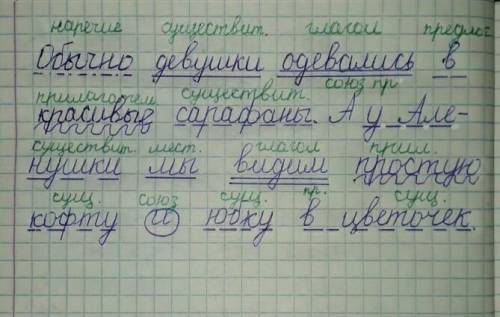 наречие существит. глагол предлог
Обычно девушки одевались в
прилагател. существит. союз пр.
красивые сарафаны. А у Але-
существит. мест. глагол прил.
нушки мы видим простую
сущ. союз сущ. пр. сущ.
кофту и юбку в цветочек.